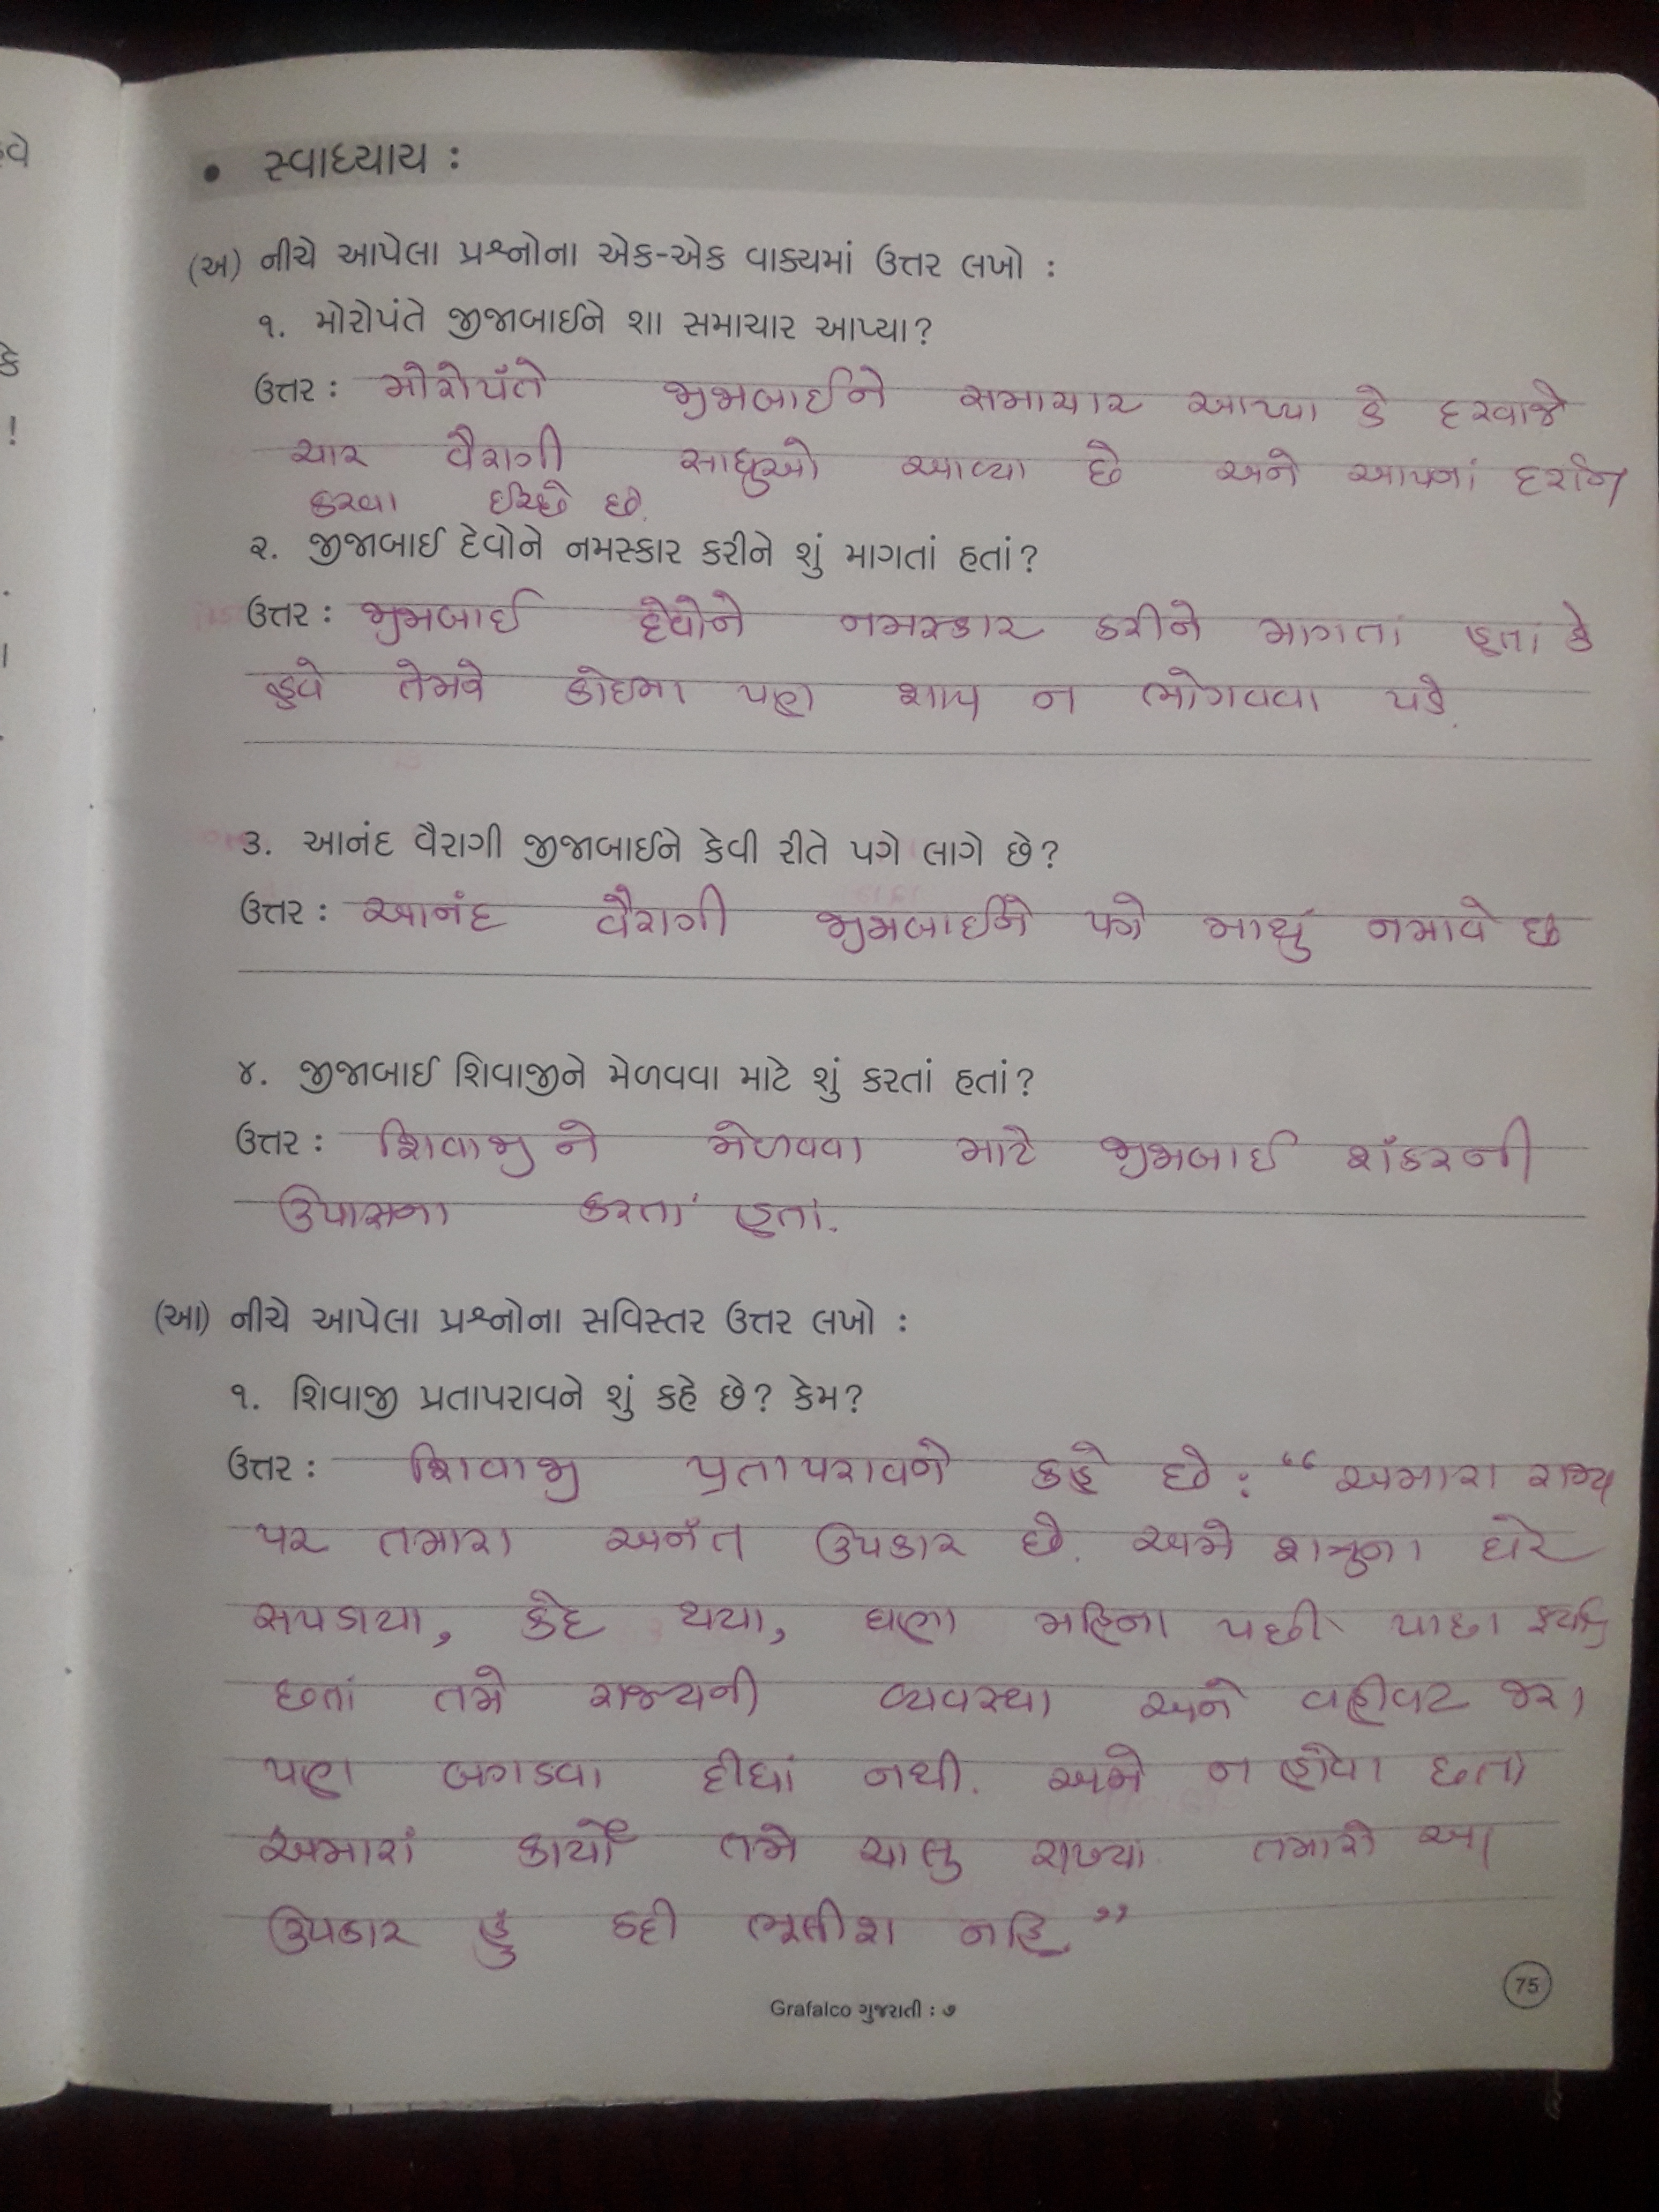 વે
કે
!
• સ્વાધ્યાય :
(અ) નીચે આપેલા પ્રશ્નોના એક-એક વાક્યમાં ઉત્તર લખો :
૧. મોરોપંતે જીજાબાઈને શા સમાચાર આપ્યા?
ઉત્તર : મોરોપંતે જીજાબાઈને સમાચાર આપ્યા કે દરવાજે
ચાર વૈરાગી સાધુઓ આવ્યા છે અને આપનાં દર્શન
કરવા ઈચ્છે છે.
૨. જીજાબાઈ દેવોને નમસ્કાર કરીને શું માગતાં હતાં?
ઉત્તર : જીજાબાઈ દેવોને નમસ્કાર કરીને માગતાં હતાં કે
હવે તેમને કોઇના પણ શાપ ન ભોગવવા પડે.
૩. આનંદ વૈરાગી જીજાબાઈને કેવી રીતે પગે લાગે છે?
ઉત્તર : આનંદ વૈરાગી જીજાબાઈને પગે માથું નમાવે છે
૪. જીજાબાઈ શિવાજીને મેળવવા માટે શું કરતાં હતાં?
ઉત્તર : શિવાજીને મેળવવા માટે જીજાબાઈ શંકરની
ઉપાસના કરતાં હતાં.
(આ) નીચે આપેલા પ્રશ્નોના સવિસ્તર ઉત્તર લખો :
૧. શિવાજી પ્રતાપરાવને શું કહે છે? કેમ?
ઉત્તર : શિવાજી પ્રતાપરાવને કહે છે : “અમારા રાજ્ય
પર તમારા અનંત ઉપકાર છે. અમે શત્રુના ઘેરે
સપડાયા, કેદ થયા, ઘણા મહિના પછી પાછા ફર્યા
છતાં તમે રાજ્યની વ્યવસ્થા અને વહીવટ જરા
પણ બગડવા દીધાં નથી. અમે ન હોવા છતાં
અમારાં કાર્યો તમે ચાલુ રાખ્યા. તમારો આ
ઉપકાર હું કદી ભૂલીશ નહિ.”
Grafalco ગુજરાતી : ૭
75